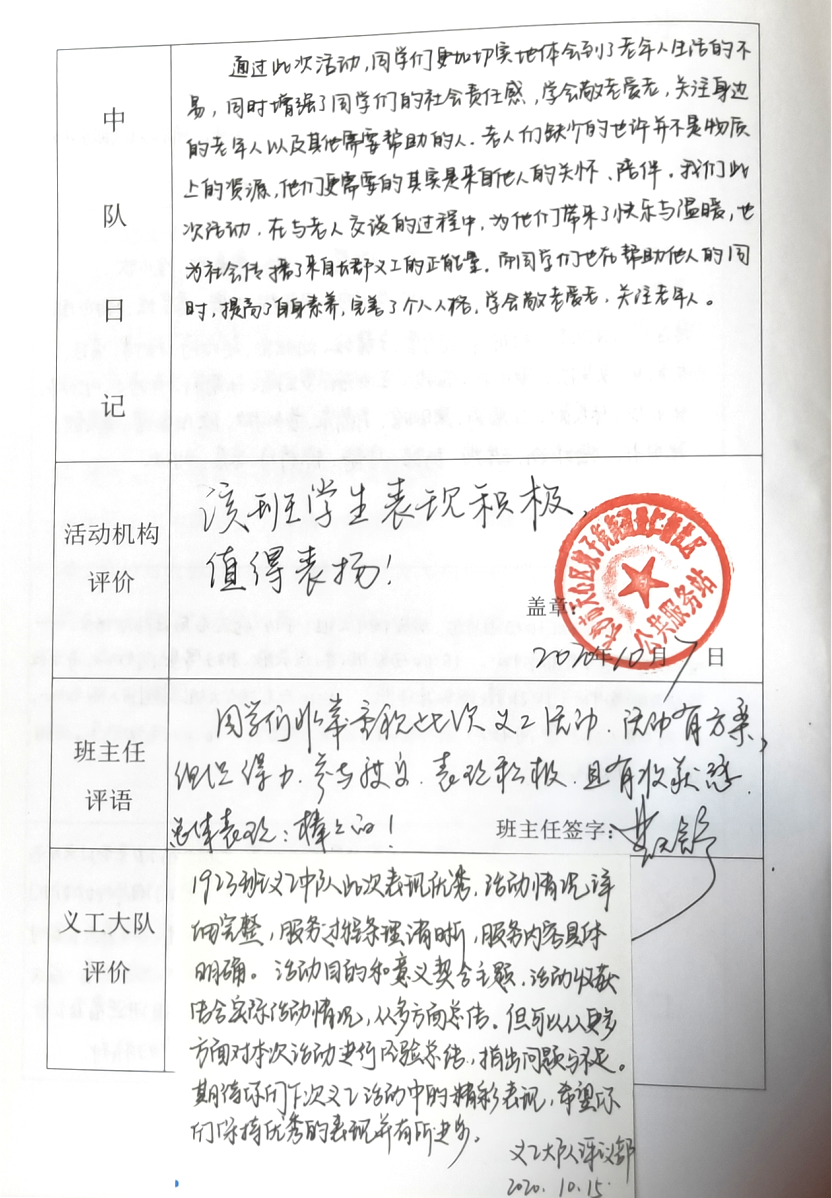 中队日记
通过此次活动,同学们更加切实地体会到了老年人生活的不
易,同时增强了同学们的社会责任感,学会敬老爱老,关注身边
的老年人以及其他需要帮助的人.老人们缺少的也许并不是物质
上的资源,他们更需要的其实是来自他人的关怀、陪伴。我们此
次活动.在与老人交谈的过程中,为他们带来了快乐与温暖,也
为社会传播了来自长郡义工的正能量。而同学们也在帮助他人的同
时,提高了自身素养,完善了个人人格,学会敬老爱老,关注老年人。
活动机构
评价
该班学生表现积极,
值得表扬!
公共服务站
盖章:
2020年10月7日
班主任
评语
同学们非常重视此次义工活动.活动有方案,
组织得力.参与技文.表现积极.且有收获感.
总体表现:棒棒的!
班主任签字:
义工大队
评价
1923班义工中队此次表现优秀,活动情况详
细完整,服务过程条理清晰,服务内容具体
明确。活动目的和意义契合主题,活动收获
结合实际活动情况,从多方面总结。但可以从更多
方面对本次活动进行经验总结,指出问题与不足。
期待你们下次义工活动中的精彩表现,希望你
们保持优秀的表现并有所进步。
义工大队评议部
2020.10.15.